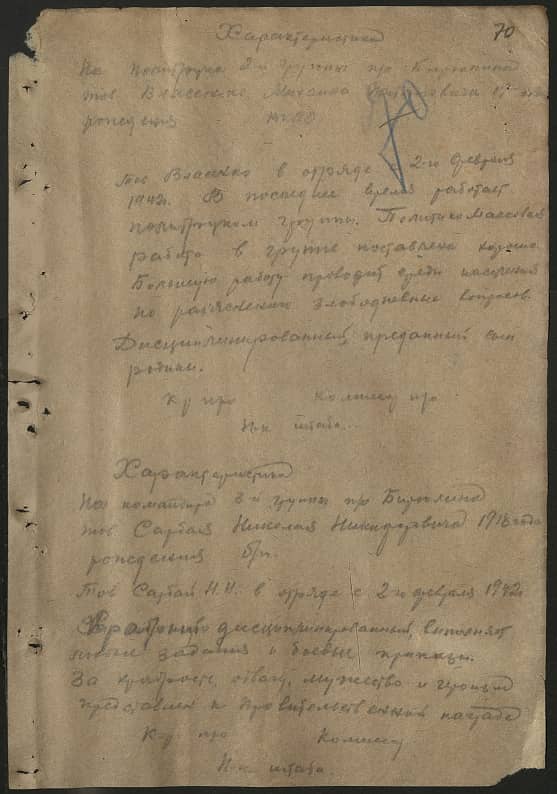 70
Характеристика
На политрука 2-й группы про
тов Власенко Михаила
рождения
Тов Власенко в отряде 2-го февраля
1942г. В последнее время работает
политруком группы. Политико массовая
работа в группе поставлена хорошо
Большую работу проводит среди населения
по разъяснению злободневных вопросов.
Дисциплинированный, преданный сын
родины.
К-р про Комиссар про
Н-к штаба.
Характеристика
На командира 3-й группы про
тов Сарбая Николая Никифоровича 1918 года
рождения б/п.
Тов Сарбай Н.Н. в отряде с 2-го февраля 1942г
дисциплинированный, выполняет
любые задания и боевые приказы.
За храбрость, отвагу, мужество и героизм
представлен к правительственной награде
К-р про Комиссар
Н-к штаба.